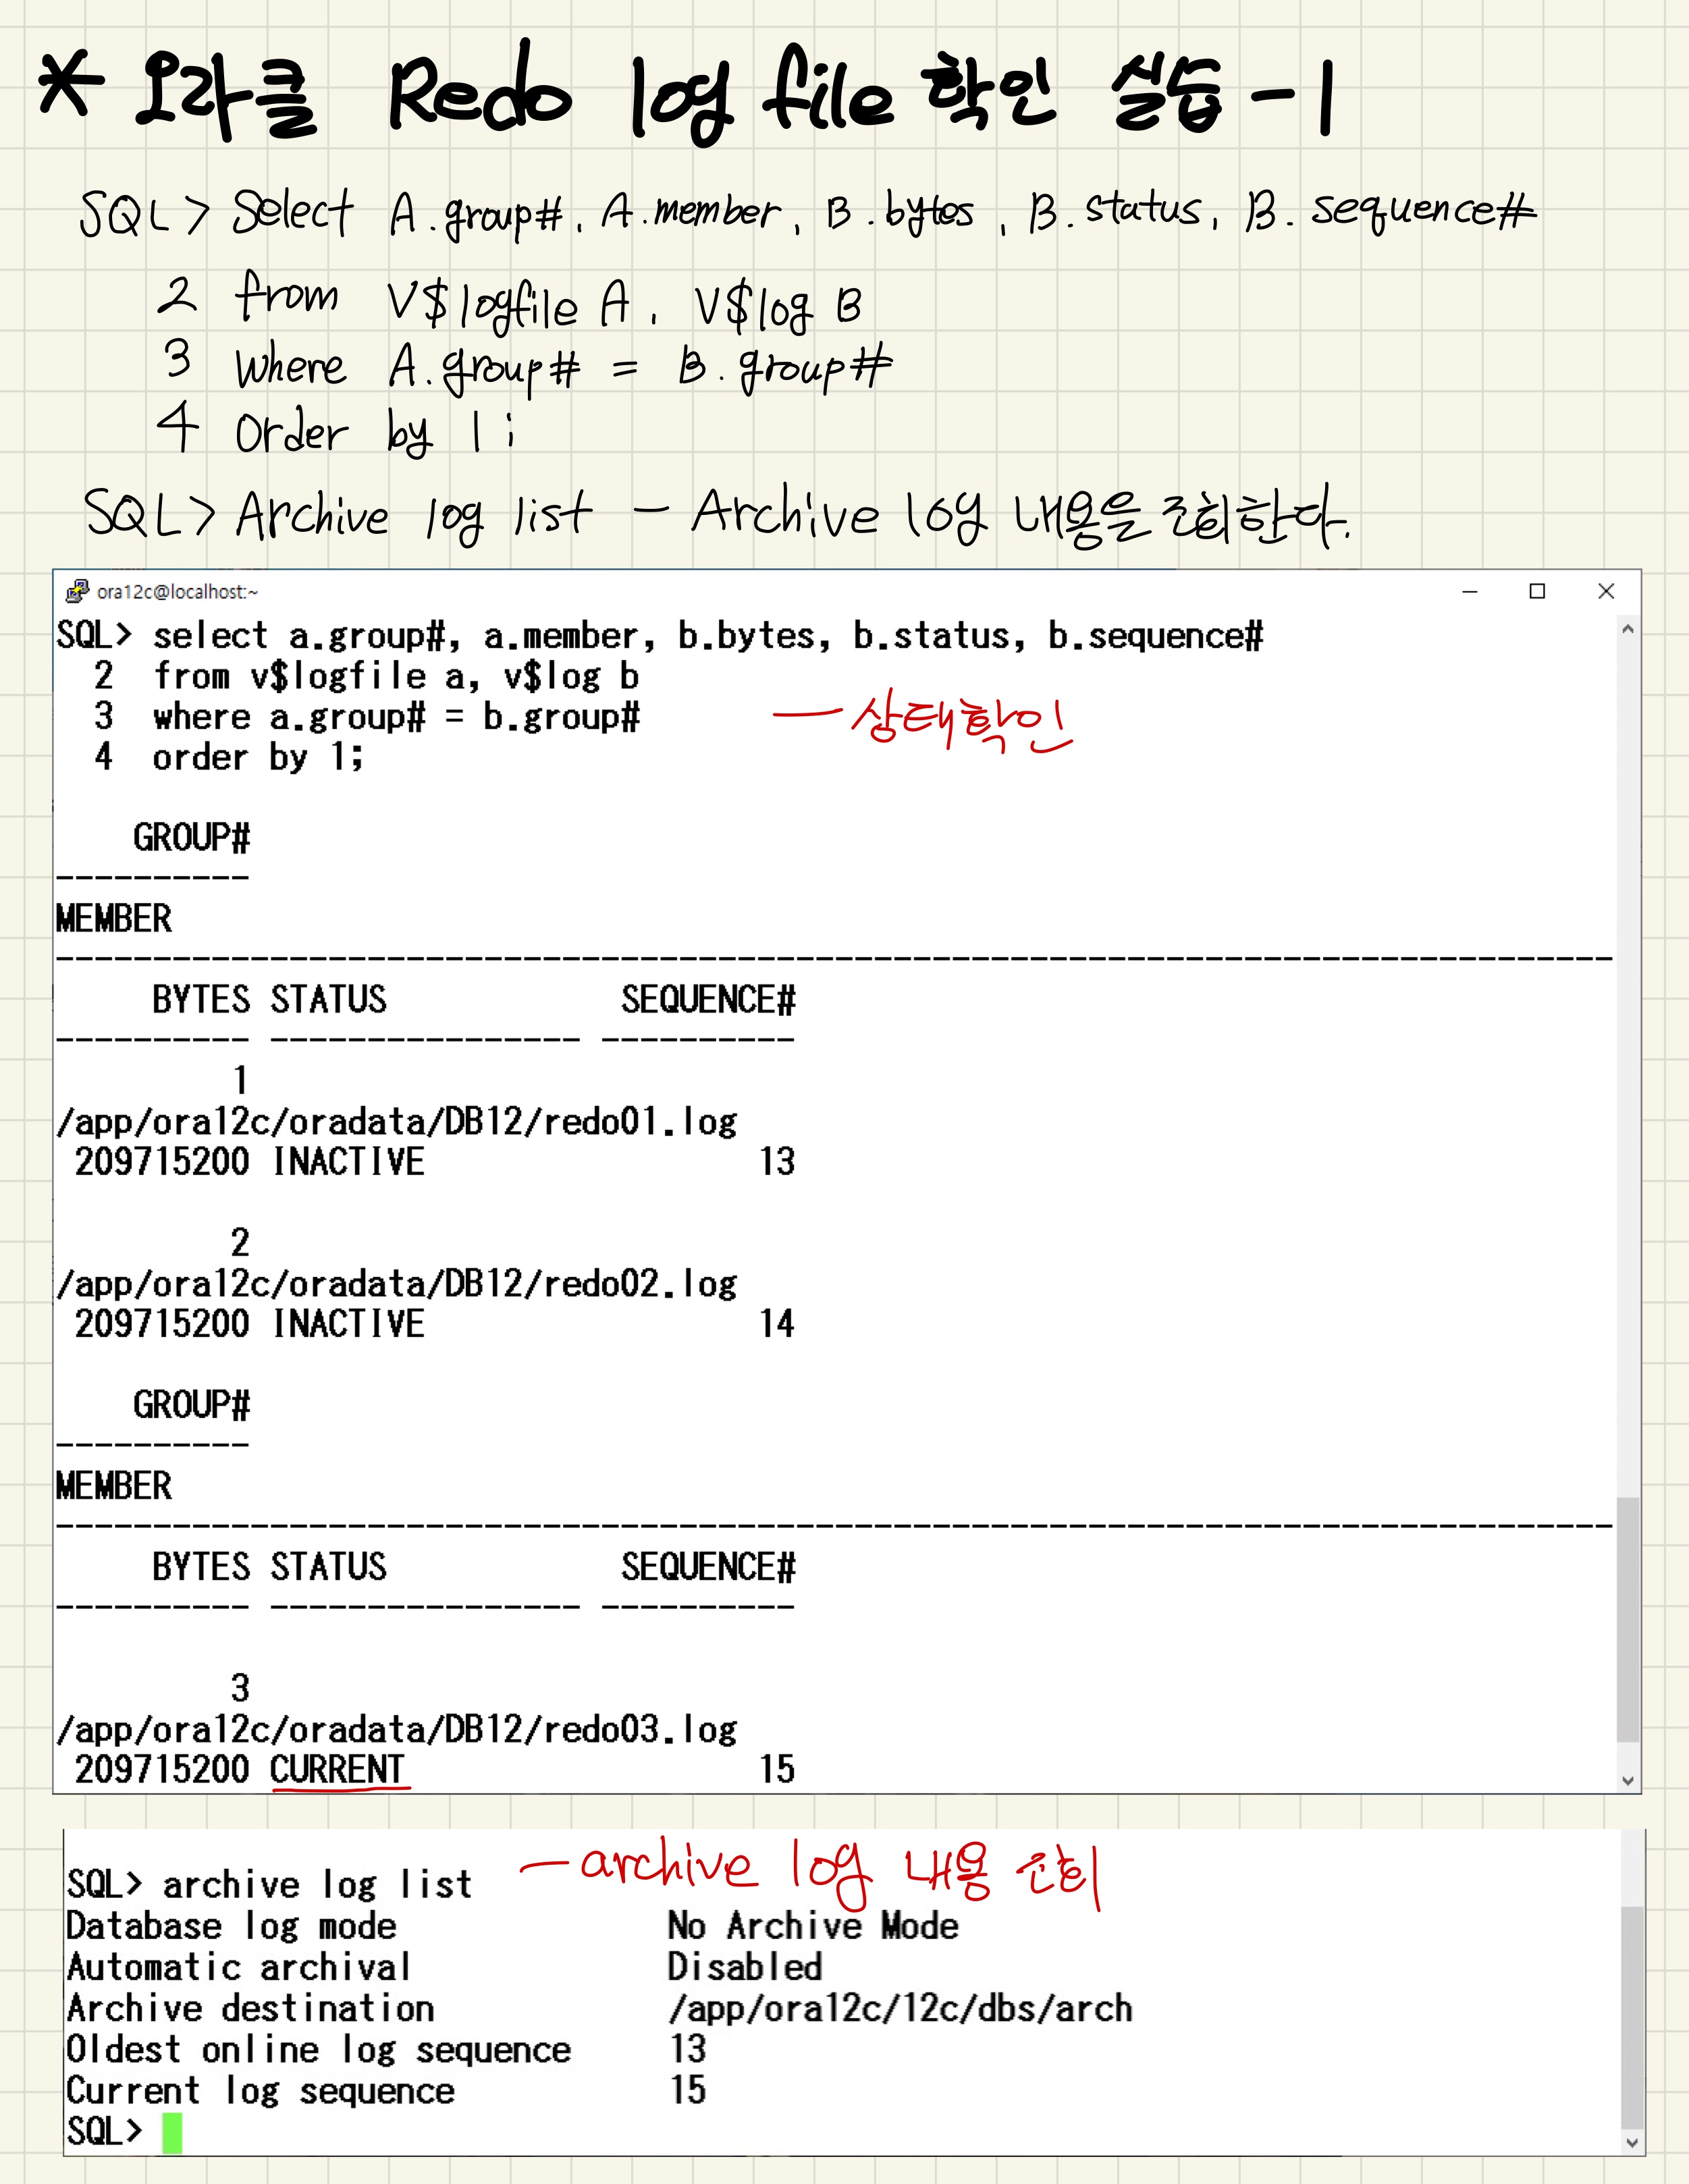 * 오라클 Redo log file 확인 실습 - 1
SQL > Select A.group#, A.member, B.bytes, B.status, B.sequence#
2 from V$logfile A, V$log B
3 where A.group# = B.group#
4 order by 1;
SQL > Archive log list - Archive log 내용을 조회한다.
ora12c@localhost:~
SQL> select a.group#, a.member, b.bytes, b.status, b.sequence#
2 from v$logfile a, v$log b
3 where a.group# = b.group# - 상태확인
4 order by 1;
GROUP#
----------
MEMBER
--------------------------------------------------------------------------------
BYTES STATUS SEQUENCE#
---------- ---------------- ----------
1
/app/ora12c/oradata/DB12/redo01.log
209715200 INACTIVE 13
2
/app/ora12c/oradata/DB12/redo02.log
209715200 INACTIVE 14
GROUP#
----------
MEMBER
--------------------------------------------------------------------------------
BYTES STATUS SEQUENCE#
---------- ---------------- ----------
3
/app/ora12c/oradata/DB12/redo03.log
209715200 CURRENT 15
SQL> archive log list - archive log 내용 조회
Database log mode No Archive Mode
Automatic archival Disabled
Archive destination /app/ora12c/12c/dbs/arch
Oldest online log sequence 13
Current log sequence 15
SQL>